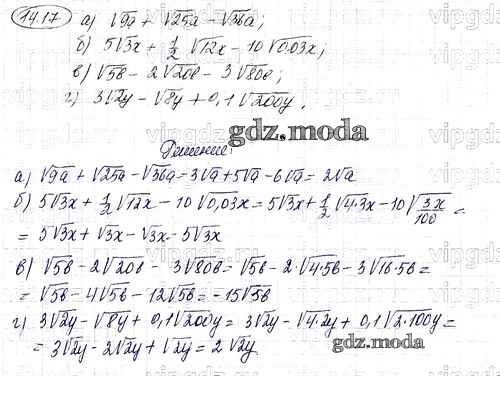 14.17 а) √9a + √25a - √36a;
б) 5√3x + 1/2 √12x - 10√0,03x;
в) √5в - 2√20в - 3√80в;
г) 3√2y - √8y + 0,1√200y.
gdz.moda
Решение:
а) √9a + √25a - √36a = 3√a + 5√a - 6√a = 2√a
б) 5√3x + 1/2 √12x - 10√0,03x = 5√3x + 1/2 √4·3x - 10√3x/100 =
= 5√3x + √3x - √3x - 5√3x
в) √5в - 2√20в - 3√80в = √5в - 2·√4·5в - 3√16·5в =
= √5в - 4√5в - 12√5в = -15√5в
г) 3√2y - √8y + 0,1√200y = 3√2y - √4·2y + 0,1√2·100y =
= 3√2y - 2√2y + √2y = 2√2y
gdz.moda